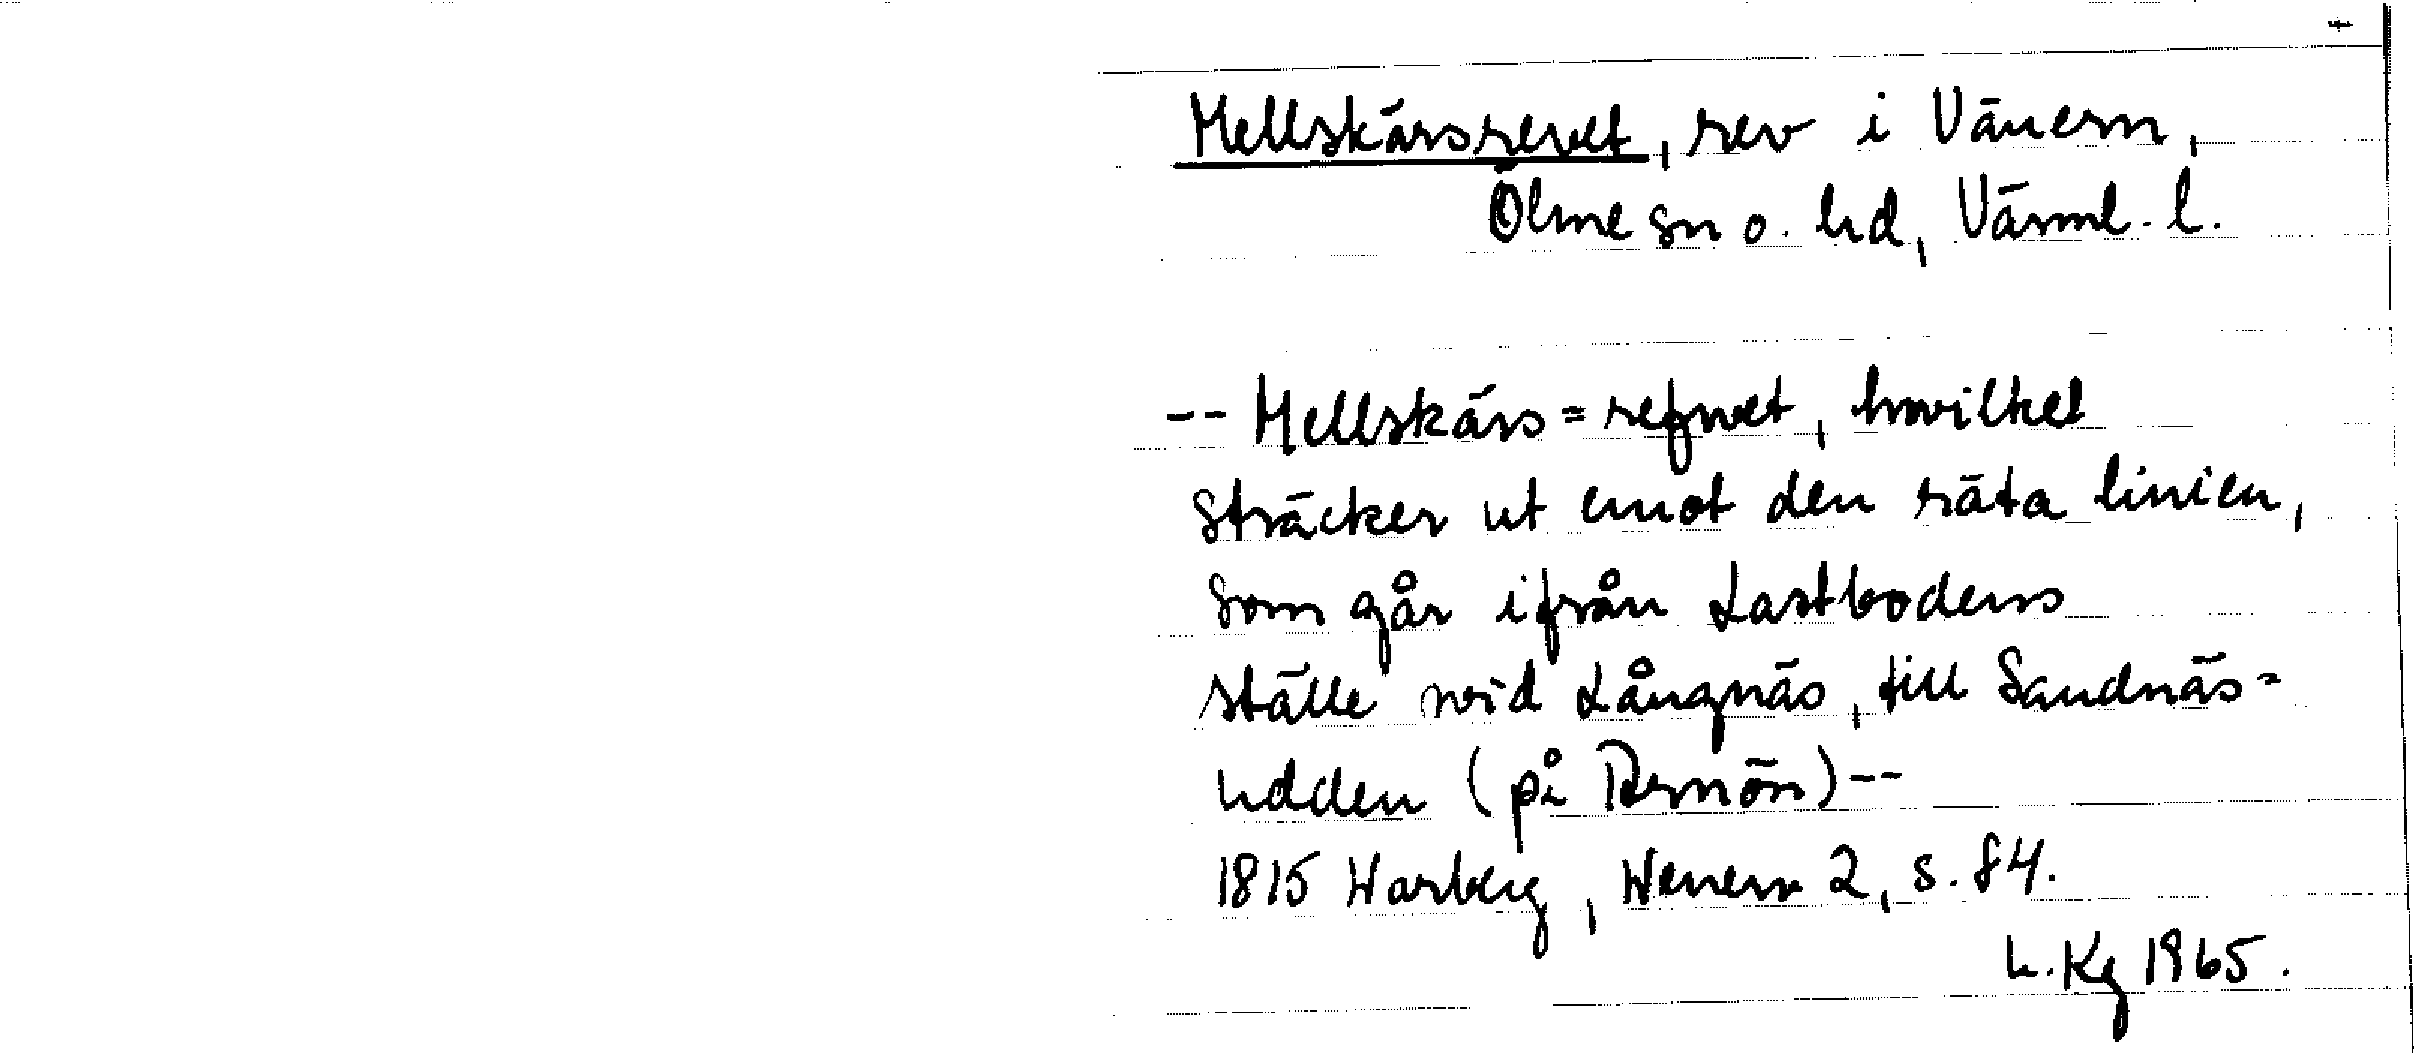 Mellskärsrevet, rev i Vänern,
Ölme sn o. hd, Värml. l.
-- Mellskärs=refwet, hwilket
sträcker ut emot den räta linien,
som går ifrån Lastbodens
ställe wid Långnäs, till Sandnäs=
udden (på Bernön) --
1815 Warberg, Wenern 2, s. 84.
L. Kg 1965.